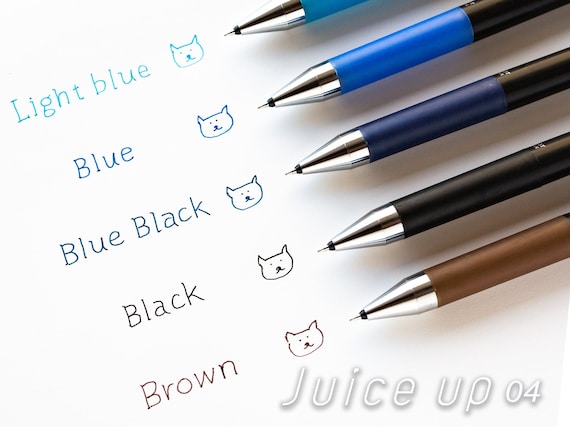 Light blue
Blue
Blue Black
Black
Brown
Juice up 04